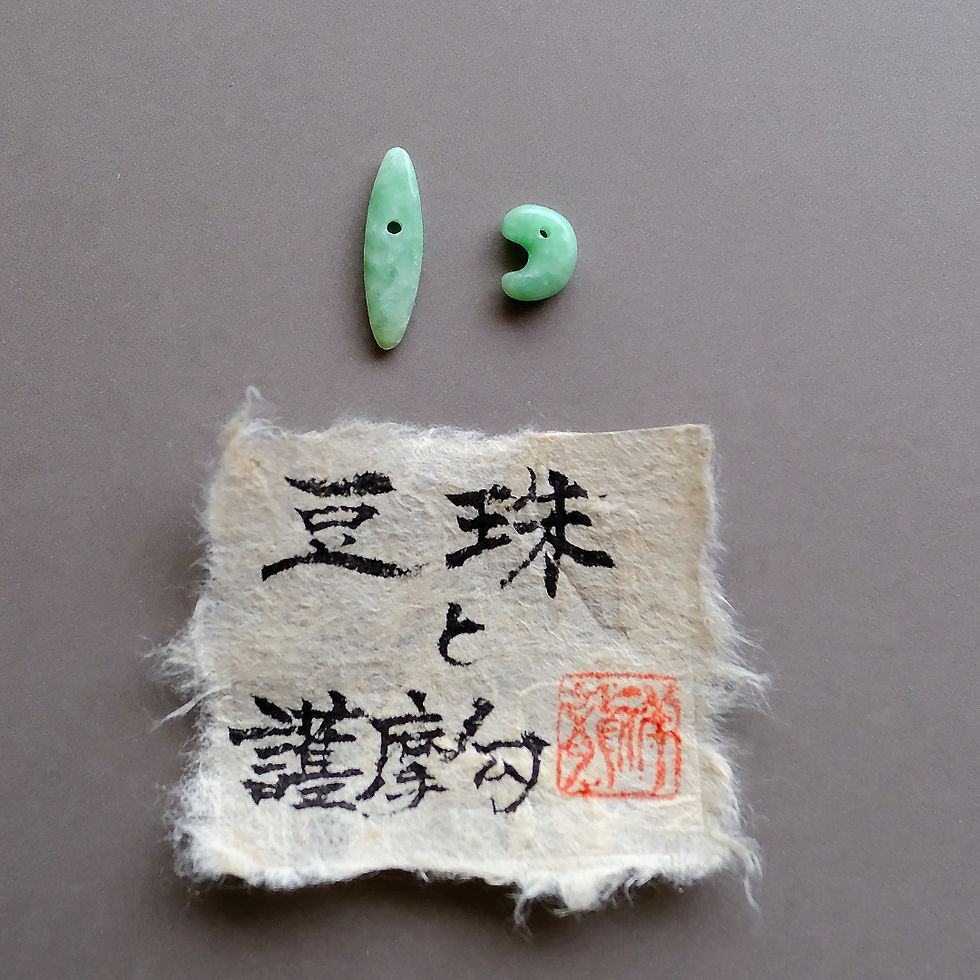 豆珠
と
護摩勾